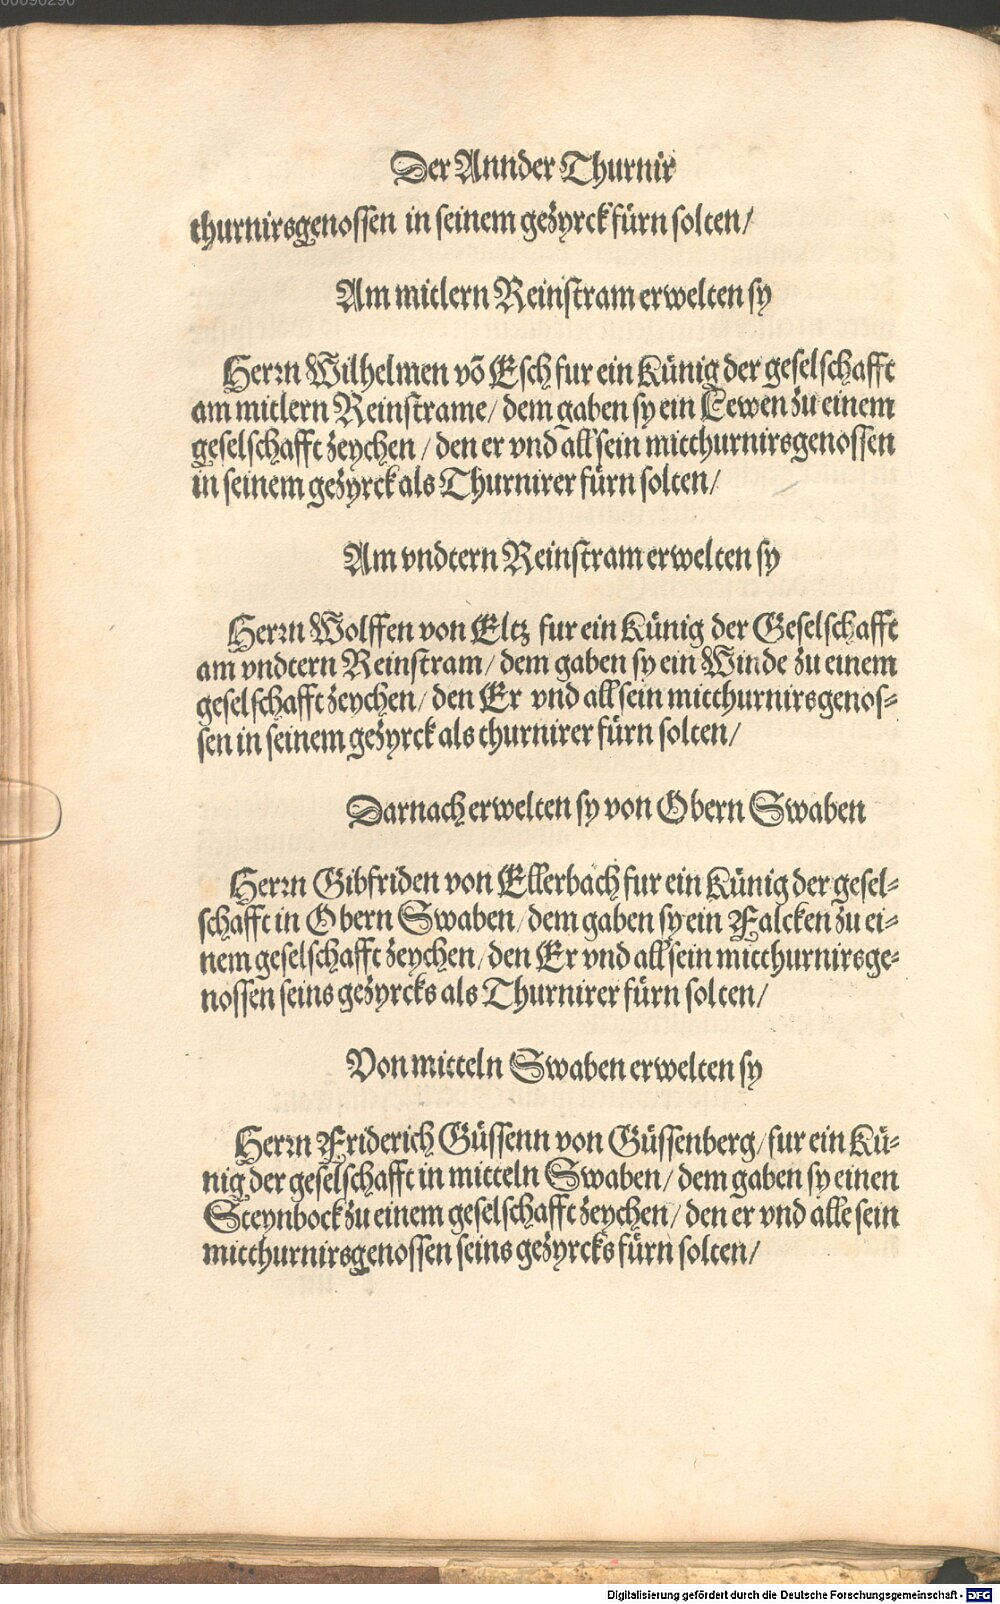 00090290
Der Annder Thurnir
thurnirsgenossen in seinem gezyrck fürn solten/
Am mitlern Reinstram erwelten sy
Herrn Wilhelmen võ Esch fur ein Künig der geselschafft
am mitlern Reinstrame/ dem gaben sy ein Lewen zu einem
geselschafft zeychen / den er vnd all sein mitthurnirsgenossen
in seinem gezyrck als Thurnirer fürn solten/
Am vndtern Reinstram erwelten sy
Herrn Wolffen von Eltz fur ein Künig der Geselschafft
am vndtern Reinstram/ dem gaben sy ein Winde zu einem
geselschafft zeychen/ den Er vnd all sein mitthurnirsgenos-
sen in seinem gezyrck als thurnirer fürn solten/
Darnach erwelten sy von Obern Swaben
Herrn Gibfriden von Ellerbach fur ein Künig der gesel-
schafft in Obern Swaben/ dem gaben sy ein Falcken zu ei-
nem geselschafft zeychen/ den Er vnd all sein mitthurnirsge-
nossen seins gezyrcks als Thurnirer fürn solten/
Von mitteln Swaben erwelten sy
Herrn Friderich Güssenn von Güssenberg/ fur ein Kü-
nig der geselschafft in mitteln Swaben/ dem gaben sy einen
Steynbock zu einem geselschafft zeychen/ den er vnd alle sein
mitthurnirsgenossen seins gezyrcks fürn solten/
Digitalisierung gefördert durch die Deutsche Forschungsgemeinschaft - DFG